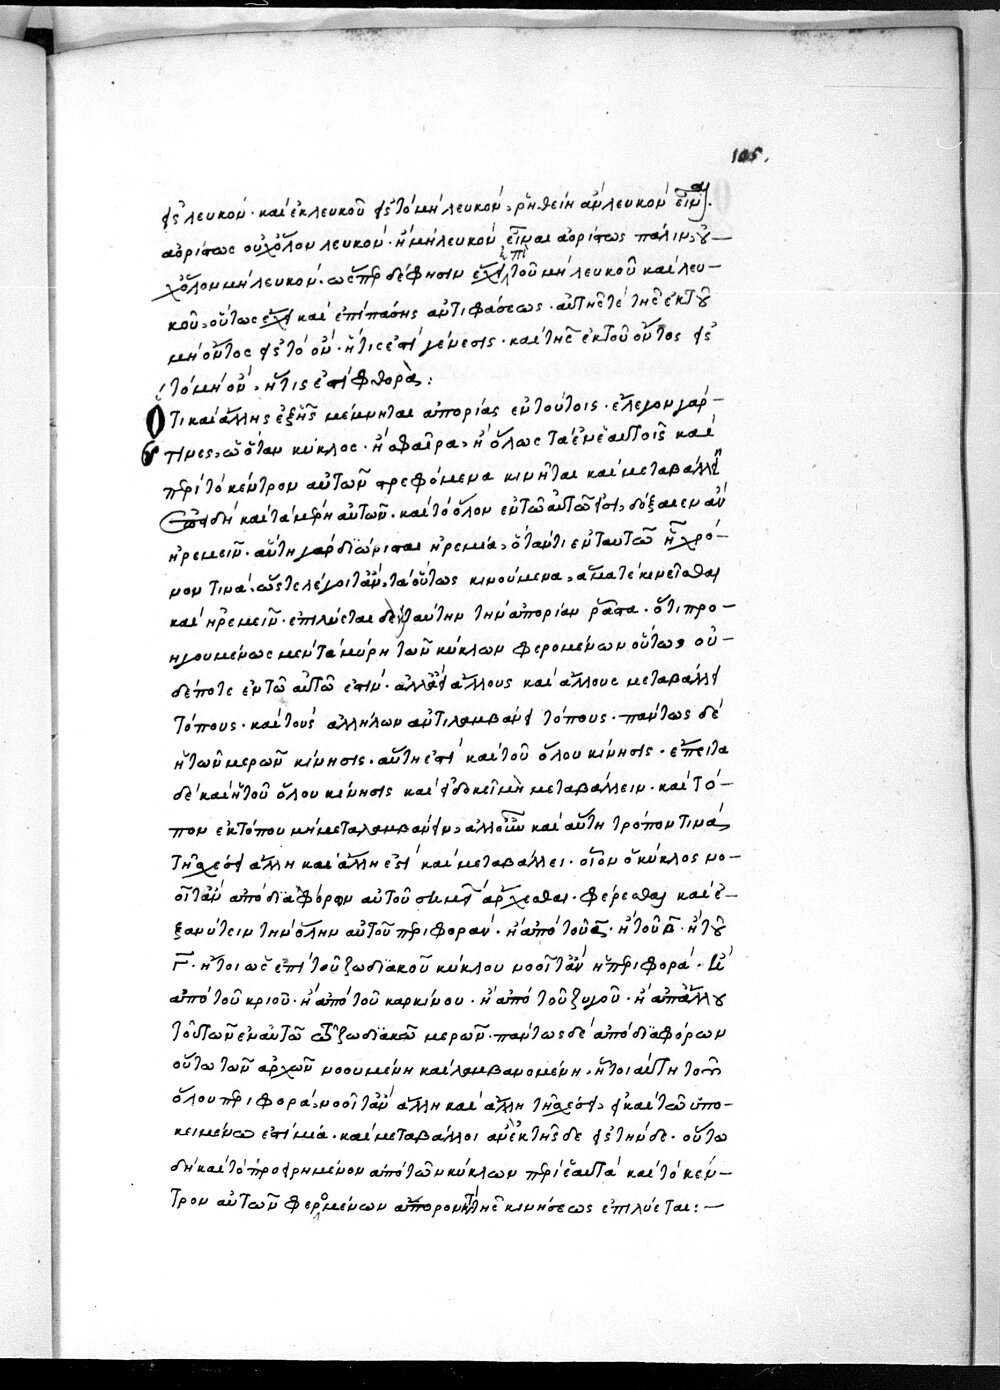 105.
εἰς λευκόν· καὶ ἐκ λευκοῦ εἰς τὸ μὴ λευκόν, ῥηθείη ἂν λευκὸν εἶναι.
ἀορίστως οὐχ ὅλον λευκόν· ἢ μὴ λευκὸν εἶναι ἀορίστως πάλιν, οὐ-
χ ὅλον μὴ λευκόν. ὥσπερ δέ φησιν ἔχει ἐπὶ τοῦ μὴ λευκοῦ καὶ λευ-
κοῦ, οὕτως ἔχει καὶ ἐπὶ πάσης ἀντιφάσεως· αὐτῆς τὲ τῆς ἐκ τοῦ
μὴ ὄντος εἰς τὸ ὄν· ἥτις ἐστὶ γένεσις· καὶ τῆς ἐκ τοῦ ὄντος εἰς
τὸ μὴ ὄν, ἥτις ἐστὶ φθορά:
Ὅτι καὶ ἄλλης ἑξῆς μέμνηται ἀπορίας ἐν τούτοις· ἔλεγον γάρ
τινες, ὡς ὅταν κύκλος· ἢ σφαῖρα, ἢ ὅλως τὰ ἐν ἑαυτοῖς καὶ
περὶ τὸ κέντρον αὐτῶν στρεφόμενα κινῆται καὶ μεταβάλλῃ
ἐπειδὴ καὶ τὰ μέρη αὐτῶν· καὶ τὸ ὅλον ἐν τῷ αὐτῷ ἐστι, δόξαιεν ἂν
ἠρεμεῖν· αὕτη γὰρ διώρισται ἠρεμία, ὅταν τι ἐν ταυτῷ ᾖ χρό-
νον τινά. ὥστε λέγοιτ' ἄν, τὰ οὕτως κινούμενα, ἅμα τε κινεῖσθαι
καὶ ἠρεμεῖν· ἐπιλύεται δὲ ταύτην τὴν ἀπορίαν ῥᾷστα· ὅτι προ-
ηγουμένως μὲν τὰ μέρη τῶν κύκλων φερομένων οὕτως, οὐ-
δέποτε ἐν τῷ αὐτῷ ἐστίν· ἀλλ' ἀεὶ ἄλλους καὶ ἄλλους μεταβάλλει
τόπους· καὶ τοὺς ἀλλήλων ἀντιλαμβάνει τόπους· πάντως δὲ
ἡ τῶν μερῶν κίνησις· αὕτη ἐστὶ καὶ τοῦ ὅλου κίνησις· ἔπειτα
δὲ καὶ ἡ τοῦ ὅλου κίνησις καὶ εἰ δοκεῖ μὴ μεταβάλλειν· καὶ τό-
πον ἐκ τόπου μὴ μεταλαμβάνειν, ἀλλ' οὖν καὶ αὕτη τρόπον τινά,
τῇ σχέσει ἄλλη καὶ ἄλλη ἐστὶ καὶ μεταβάλλει· οἷον ὁ κύκλος νο-
οῖτ' ἂν ἀπὸ διαφόρων αὐτοῦ σημείων ἄρχεσθαι· φέρεσθαι καὶ ἐ-
ξανύτειν τὴν ὅλην αὐτοῦ περιφοράν· ἢ ἀπὸ τοῦ α· ἢ τοῦ β· ἢ τοῦ
γ· ἤτοι ὡς ἐπὶ τοῦ ζωδιακοῦ κύκλου νοοῖτ' ἂν ἡ περιφορά· ἢ
ἀπὸ τοῦ κριοῦ· ἢ ἀπὸ τοῦ καρκίνου· ἢ ἀπὸ τοῦ ζυγοῦ· ἢ ἀπ' ἄλλου
του τῶν ἐν αὐτῷ τῷ ζωδιακῷ μερῶν· πάντως δὲ ἀπὸ διαφόρων
οὕτω τῶν ἀρχῶν νοουμένη καὶ λαμβανομένη, ἤτοι αὕτη τοῦ
ὅλου περιφορά, νοοῖτ' ἂν ἄλλη καὶ ἄλλη τῇ σχέσει, εἰ καὶ τῷ ὑπο-
κειμένῳ ἐστὶ μία· καὶ μεταβάλλοι ἂν ἐκ τῆσδε εἰς τήνδε· οὕτω
δὴ καὶ τὸ προειρημένον ἀπὸ τῶν κύκλων περὶ ἑαυτὰ καὶ τὸ κέν-
τρον αὐτῶν φερομένων ἄπορον τῆς κινήσεως ἐπιλύεται:—